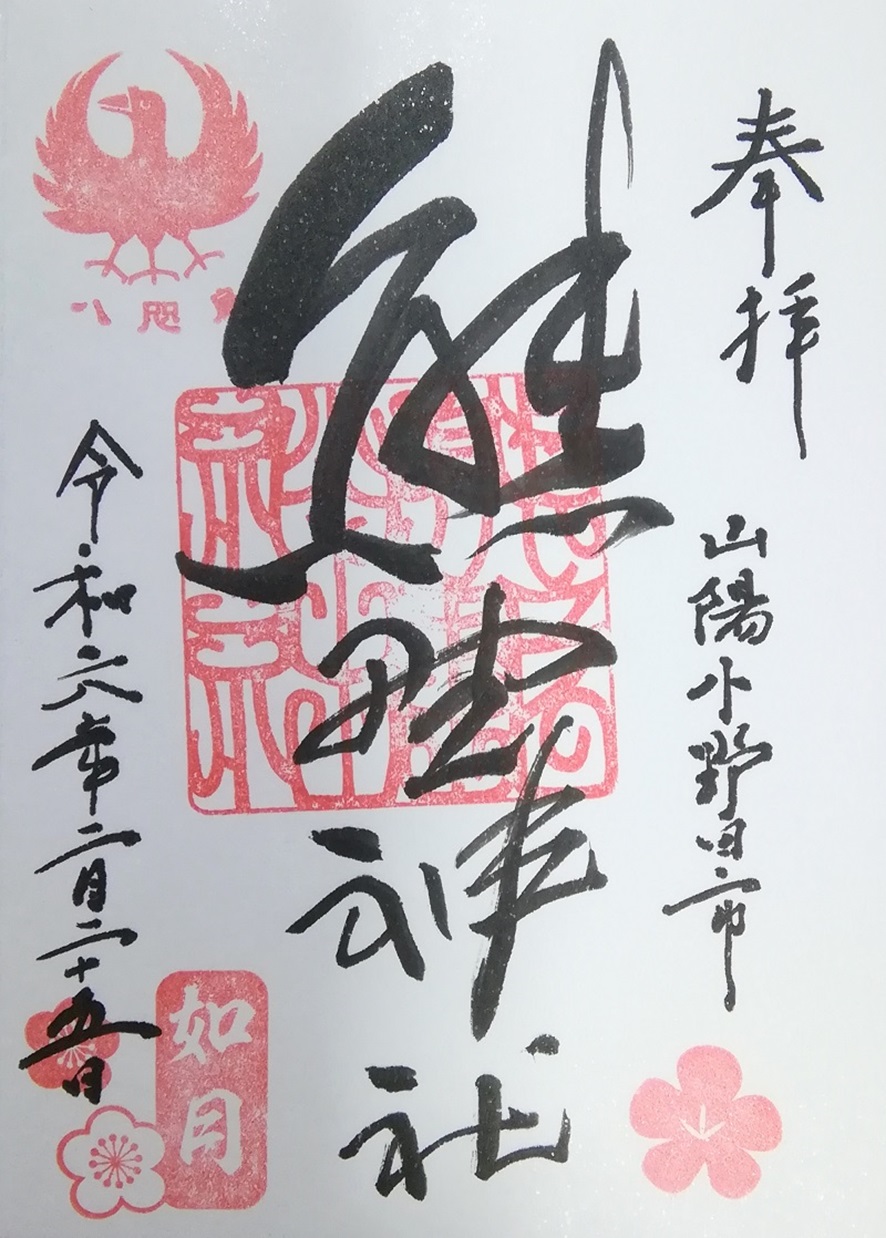 奉拝
山陽小野田市
熊野神社
八咫烏
令和六年二月二十五日
如月